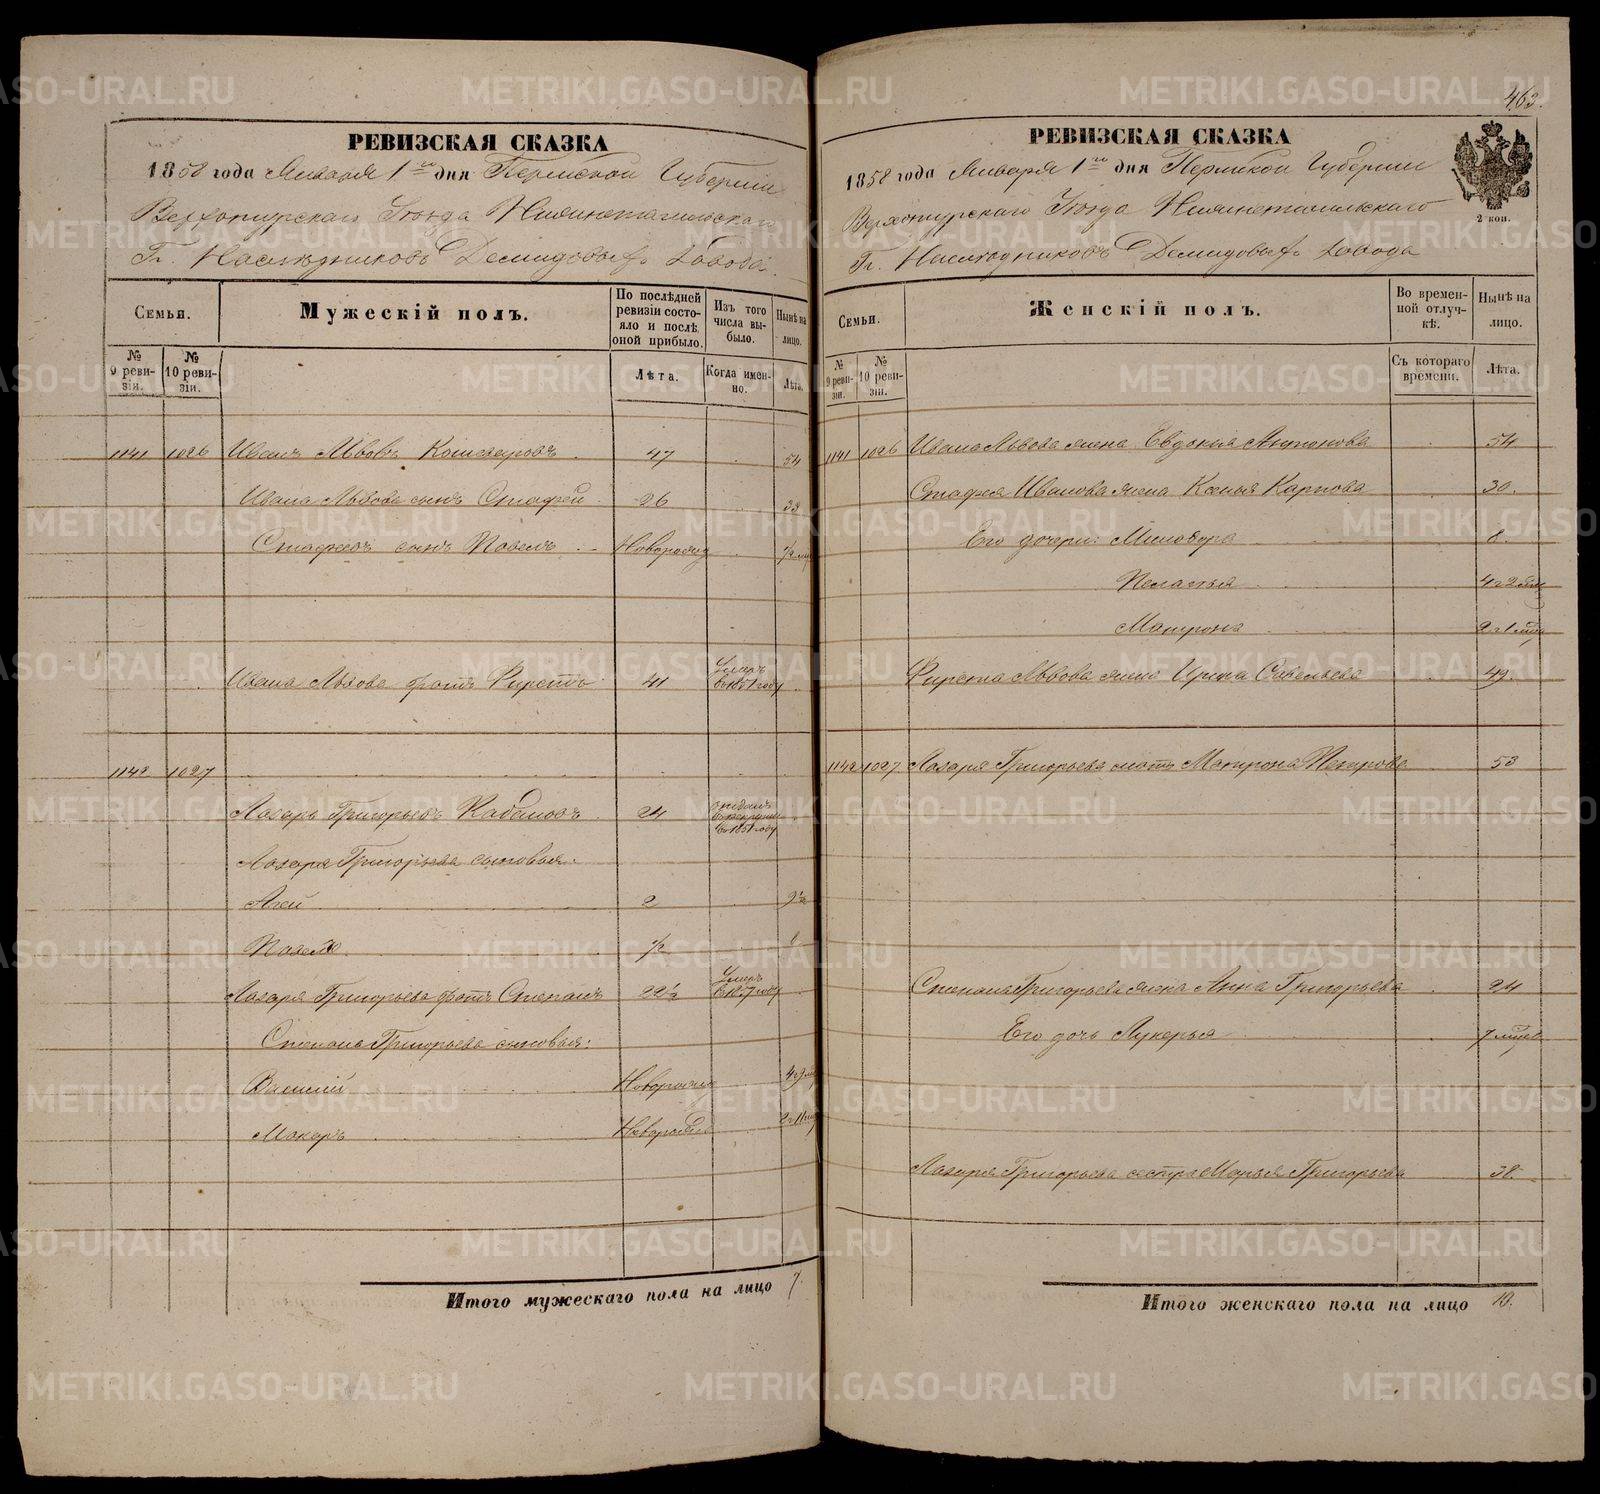 463.
РЕВИЗСКАЯ СКАЗКА
1858 года Января 1го дня Пермской Губернии
Верхотурскаго Уѣзда Нижнетагильскаго
Гг. Наслѣдниковъ Демидовыхъ Завода.
Семьи.
Мужескій полъ.
По послѣдней ревизіи состояло и послѣ оной прибыло.
Изъ того числа выбыло.
Нынѣ на лицо.
№ 9 ревизіи.
№ 10 ревизіи.
Лѣта.
Когда именно.
Лѣта.
1141 1026 Иванъ Львовъ 47 54
Ивана Львова сынъ Стафей 26 33
сынъ Павелъ Новорожд 1/2
Ивана Львова братъ 41 Умеръ въ 1851 году
1142 1027
Лазарь Григорьевъ Кабановъ 24 отданъ въ рекруты въ 1851 году
Лазаря Григорьева сыновья:
Агей 2 9 1/2
Павелъ 1/2 8
Лазаря Григорьева братъ Степанъ 22 1/2 Умеръ въ 1857 году
Степана Григорьева сыновья:
Василій Новорожд
Макаръ Новорожд
Итого мужескаго пола на лицо 7.
РЕВИЗСКАЯ СКАЗКА
1858 года Января 1го дня Пермской Губерніи
Верхотурскаго Уѣзда Нижнетагильскаго
Гг. Наслѣдниковъ Демидовыхъ Завода
2 коп.
Семьи.
Женскій полъ.
Во временной отлучкѣ.
Нынѣ на лицо.
№ 9 ревизіи.
№ 10 ревизіи.
Съ котораго времени.
Лѣта.
1141 1026 Ивана Львова жена Евдокія Антонова 54
Стафея Иванова жена Ксенья Карпова 30.
Его дочери: Минодора 8.
Пелагья
Матрона
Львова жена Ирина Савельева 49.
1142 1027 Лазаря Григорьева мать Матрона Петрова 53
Степана Григорьева жена Анна Григорьева 24
Его дочь Лукерья 7
Лазаря Григорьева сестра Марья Григорьева 38.
Итого женскаго пола на лицо 10.
METRIKI.GASO-URAL.RU